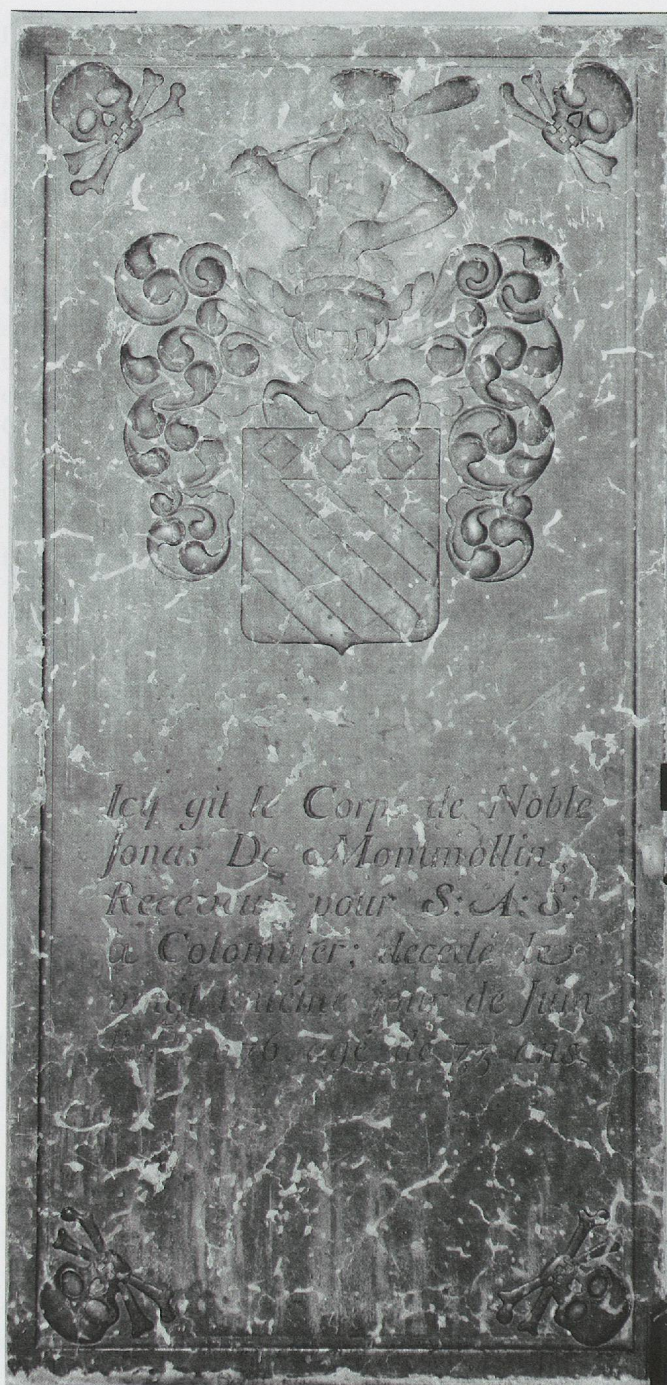 Icy git le Corps de Noble
Jonas De Montmollin,
Receveur pour S: A: S:
à Colombier; decedé le
vingt jour de Juin
agé de 73 ans